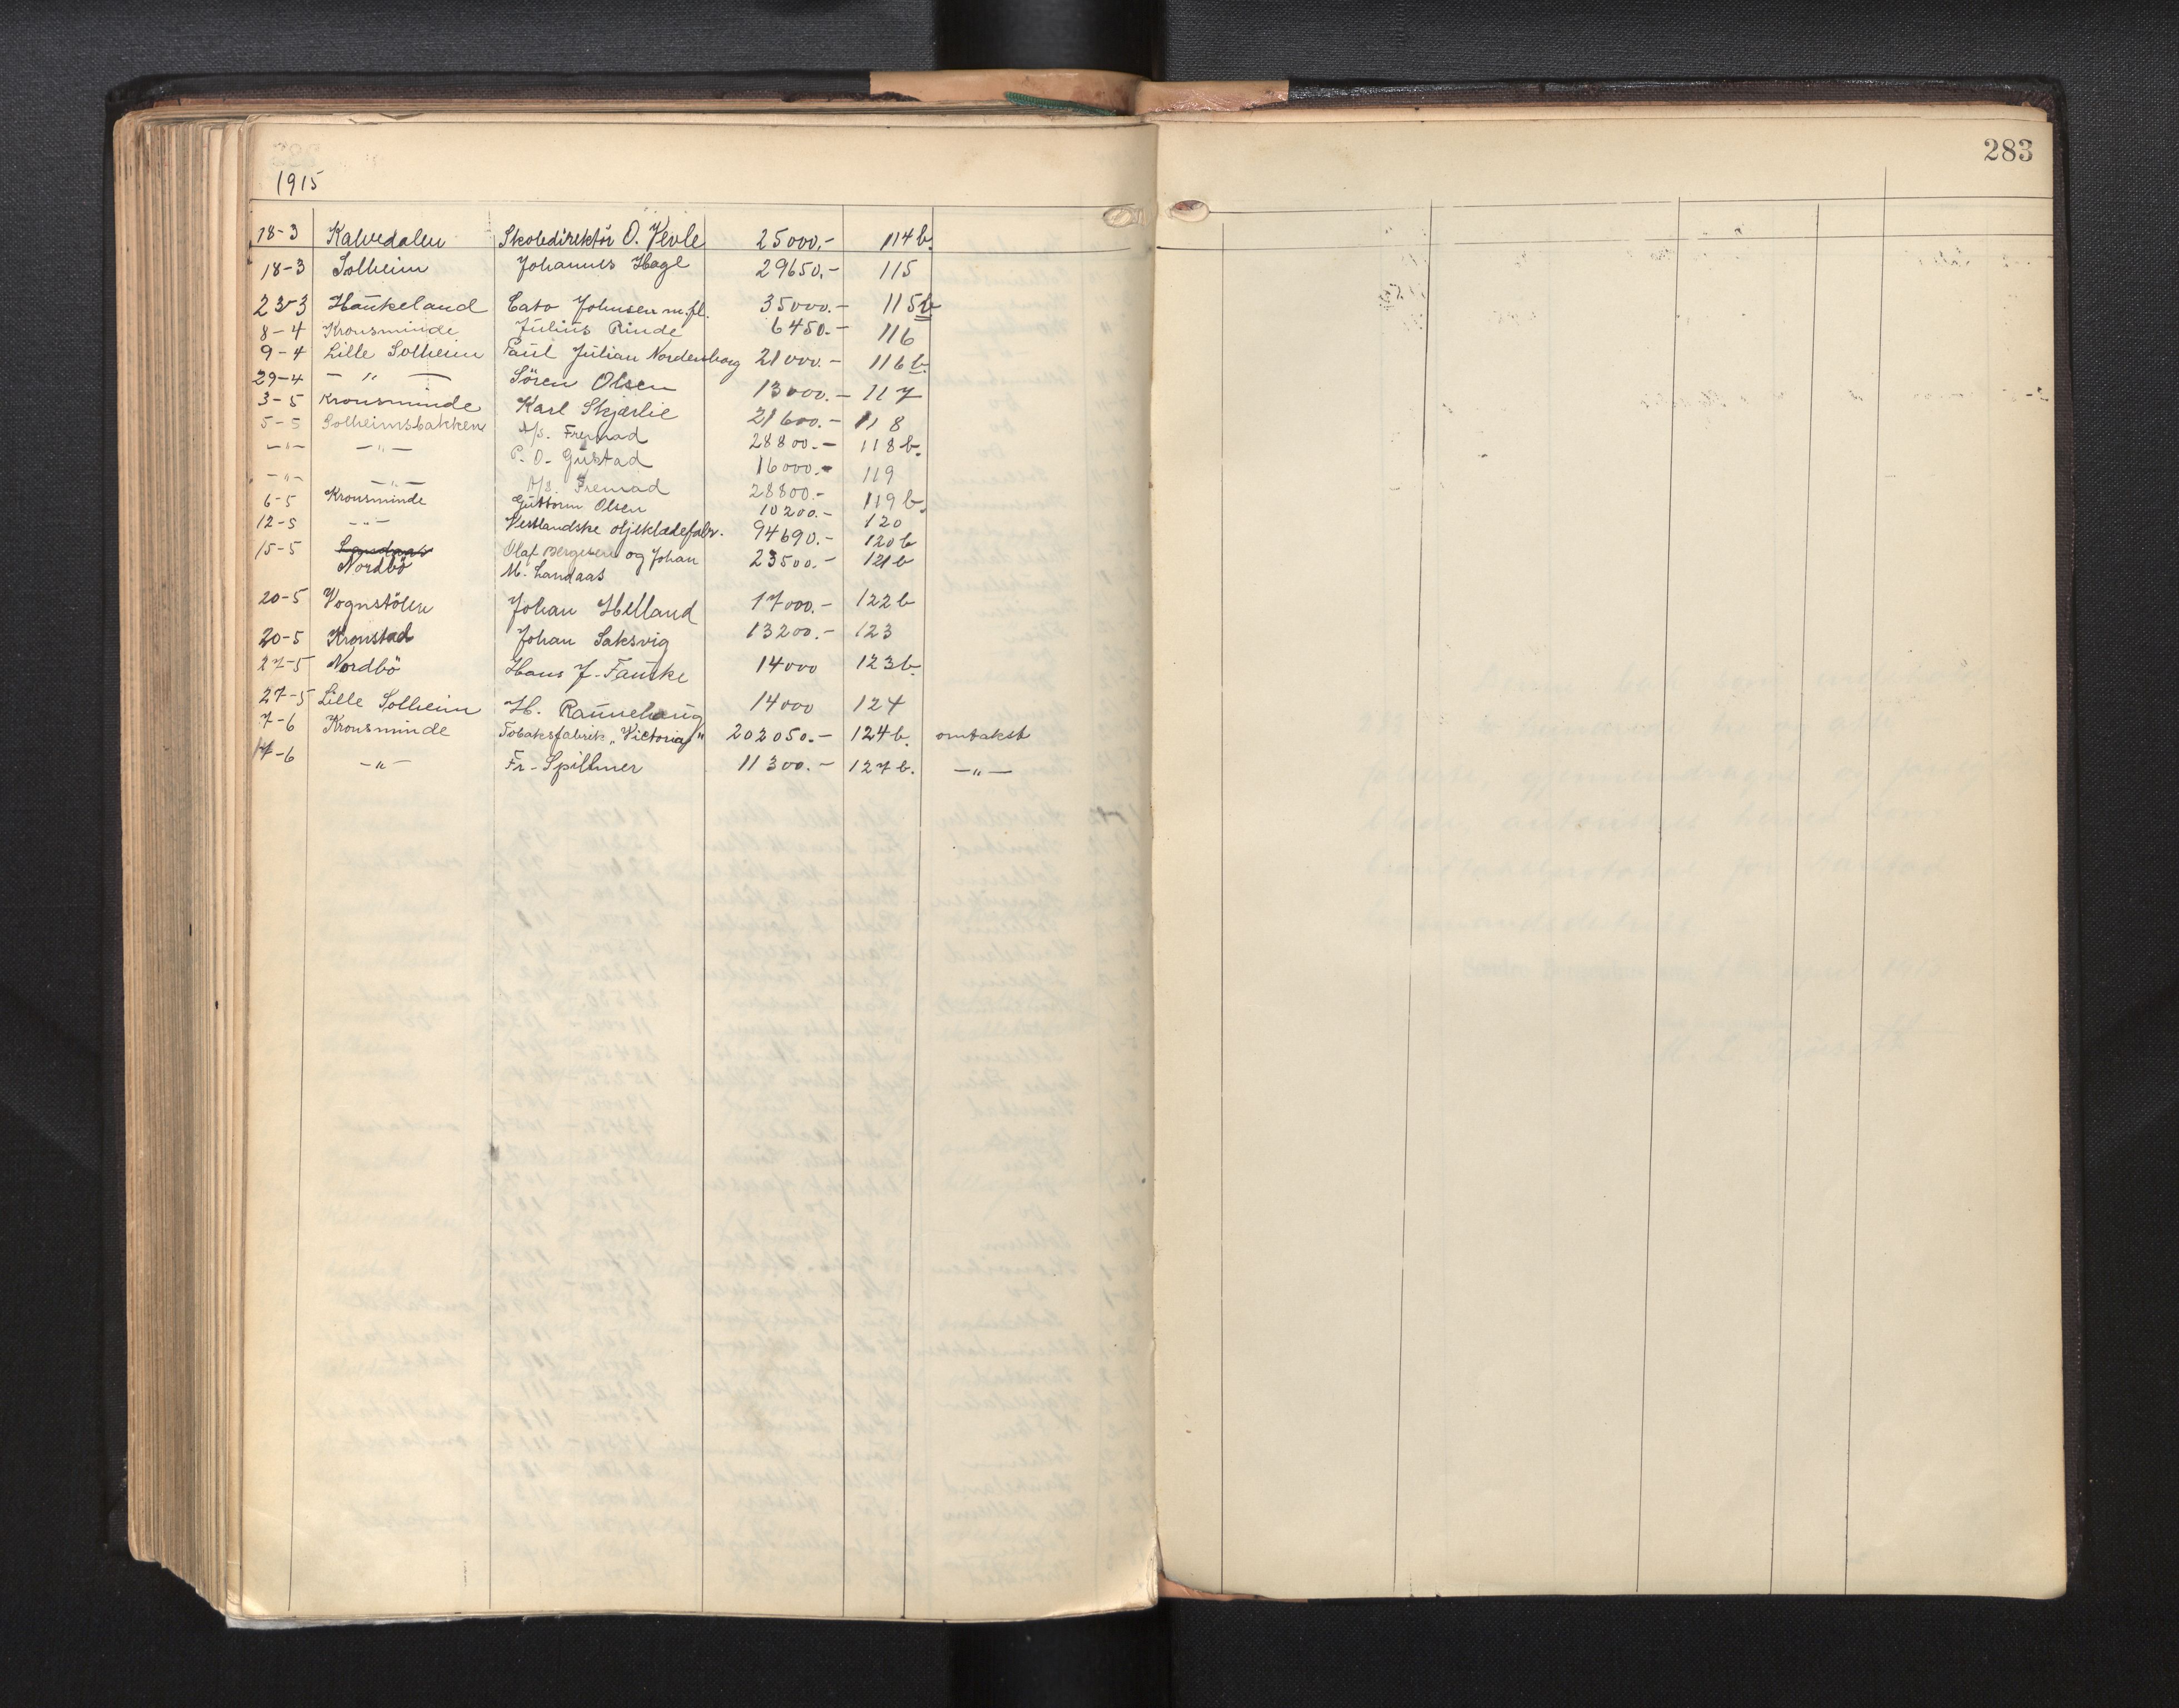 283
1915
18-3 Kalvedalen Skoledirektör O. Vevle 25000.- 114 b.
18-3 Solheim Johannes Hage 29650.- 115
23-3 Haukeland Cato Johnsen m.fl. 35000.- 115 b
8-4 Kronsminde Julius Rinde 6450.- 116
9-4 Lille Solheim Paul Julian Nordenborg 21000.- 116 b.
29-4 - " - Sören Olsen 13000.- 117
3-5 Kronsminde Karl Skjerlie 21600.- 118
5-5 Solheimsbakken A/s. Fremad 28800.- 118 b.
-"- -"- P. O. Gustad 16000.- 119
-"- -"- A/s. Fremad 28800.- 119 b.
6-5 Kronsminde Guttorm Olsen 10200.- 120
12-5 -"- Vestlandske oljeklædefabr. 94690.- 120 b
15-5 Landaas Olaf Bergesen og Johan 23500.- 121 b
Nordbö M. Landaas
20-5 Vognstölen Johan Helland 17000.- 122 b
20-5 Kronstad Johan Saksvig 13200.- 123
27-5 Nordbö Hans J. Fauske 14000 123 b.
27-5 Lille Solheim H. Raunehaug 14000 124
7-6 Kronsminde Tobaksfabrik "Victoria" 202050.- 124 b. omtakst
14-6 -"- Fr. Spillner 11300.- 127 b. -"-